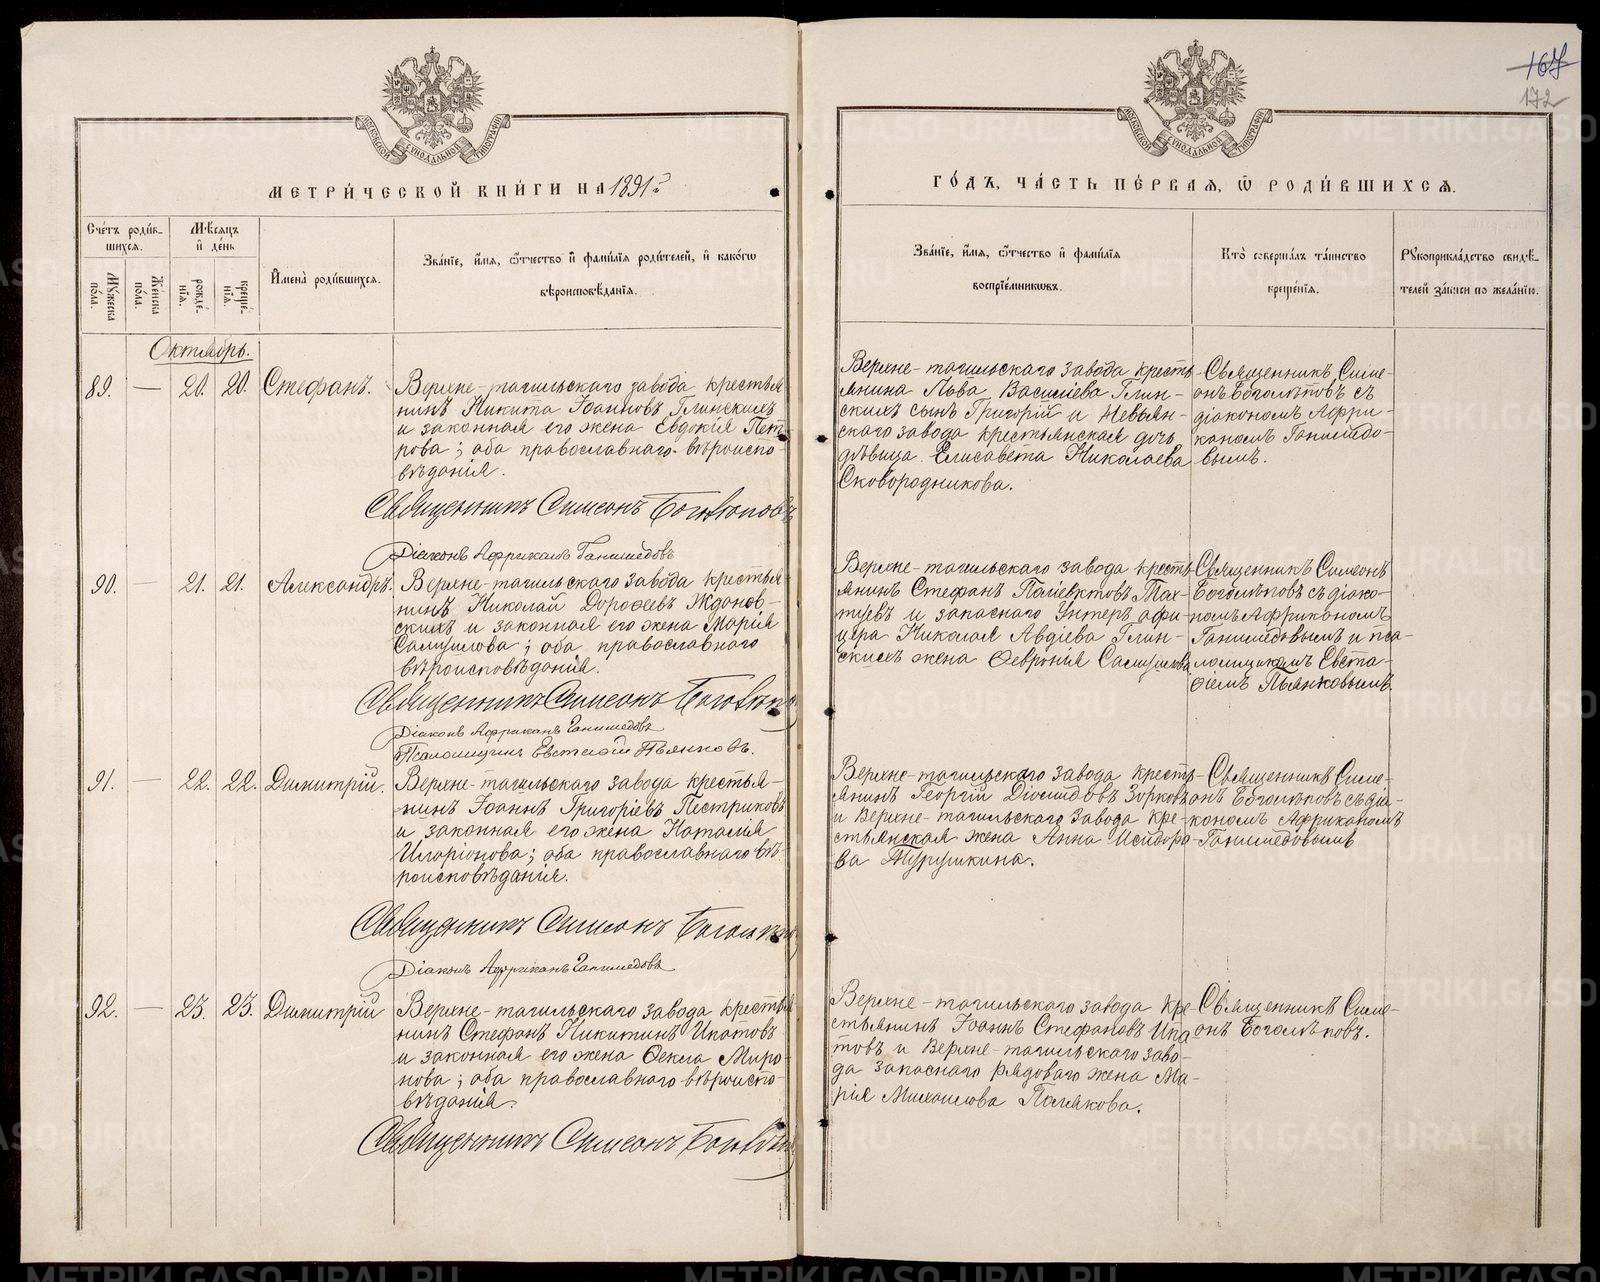 167
172
МЕТРИ́ЧЕСКОЙ КНИ́ГИ НА 1891 г.
ГО́ДЪ, ЧА́СТЬ ПЕ́РВАЯ, Ѿ РОДИ́ВШИХСѦ.
Сче́тъ роди́в-
шихсѧ.
Мꙋжеска по́ла.
Же́нска по́ла.
Мѣ́сѧцъ
и҆ де́нь
рожде́-
нїѧ.
креще́-
нїѧ.
И҆мена̀ роди́вшихсѧ.
Зва́нїе, и҆́мѧ, ѻ҆́тчество и҆ фами́лїѧ роди́телей, и҆ како́гѡ
вѣроисповѣ́данїѧ.
Зва́нїе, и҆́мѧ, ѻ҆́тчество и҆ фами́лїѧ
воспрїе́мникѡвъ.
Кто̀ соверша́лъ та́инство
креще́нїѧ.
Рꙋкоприкла́дство свидѣ́-
телей за́писи по жела́нїю.
Октябрь.
89. — 20. 20. Стефанъ.
Верхне-тагильскаго завода крестья-
нинъ Никита Іоанновъ Глинскихъ
и законная его жена Евдокія Пет-
рова; оба православнаго вѣроиспо-
вѣданія.
Священникъ Симеонъ Боголѣповъ
Діаконъ Африканъ Ганимедовъ
Верхне-тагильскаго завода кресть-
янина Льва Василіева Глин-
скихъ сынъ Григорій и Невьян-
скаго завода крестьянская дочь
дѣвица Елисавета Николаева
Сковородникова.
Священникъ Симе-
онъ Боголѣповъ съ
діакономъ Афри-
каномъ Ганимедо-
вымъ.
90. — 21. 21. Александръ.
Верхне-тагильскаго завода крестья-
нинъ Николай Дорофеевъ Ждановскихъ
и законная его жена Марія
Самуилова; оба православнаго
вѣроисповѣданія.
Священникъ Симеонъ Боголѣповъ
Діаконъ Африканъ Ганимедовъ
Псаломщикъ Евстафій Пьянковъ.
Верхне-тагильскаго завода кресть-
янинъ Стефанъ Поліевктовъ
и запаснаго Унтеръ офи-
цера Николая Авдіева Глин-
скихъ жена Февронія Самуилова
Священникъ Симеонъ
Боголѣповъ съ діако-
номъ Африканомъ
Ганимедовымъ и пса-
ломщикомъ Евста-
фіемъ Пьянковымъ.
91. — 22. 22. Димитрій.
Верхне-тагильскаго завода крестья-
нинъ Іоаннъ Григоріевъ Пестриковъ
и законная его жена Наталія
Иларіонова; оба православнаго вѣ-
роисповѣданія.
Священникъ Симеонъ Боголѣповъ
Діаконъ Африканъ Ганимедовъ
Верхне-тагильскаго завода кресть-
янинъ Георгій Діомидовъ Зорковъ
и Верхне-тагильскаго завода кре-
стьянская жена Анна Исидоро-
ва Турушкина.
Священникъ Симе-
онъ Боголѣповъ съ діа-
кономъ Африканомъ
Ганимедовымъ
92. — 23. 23. Димитрій
Верхне-тагильскаго завода крестья-
нинъ Стефанъ Никитинъ Ипатовъ
и законная его жена Фекла Миро-
нова; оба православнаго вѣроиспо-
вѣданія.
Священникъ Симеонъ Боголѣповъ
Верхне-тагильскаго завода кре-
стьянинъ Іоаннъ Стефановъ Ипа-
товъ и Верхне-тагильскаго заво-
да запаснаго рядоваго жена Ма-
рія Михаилова Полякова.
Священникъ Симе-
онъ Боголѣповъ.
METRIKI.GASO-URAL.RU